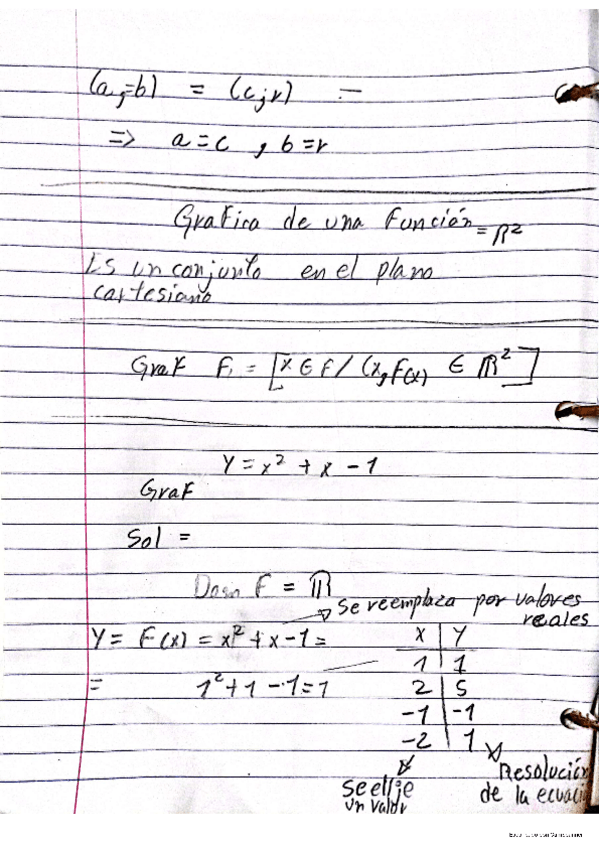 (a,=b) = (c,r) =
=> a=c , b=r
Grafica de una Función = R²
Es un conjunto en el plano
cartesiano
Graf F, = [x ∈ F / (x, F(x) ∈ R²]
Y = x² + x - 1
Graf
Sol =
Dom F = R
Se reemplaza por valores
reales
Y = F(x) = x² + x - 1 =
x | Y
1 | 1
= 1² + 1 - 1 = 1
2 | 5
-1 | -1
-2 | 1
Resolución
de la ecuaci
se elije
un valor